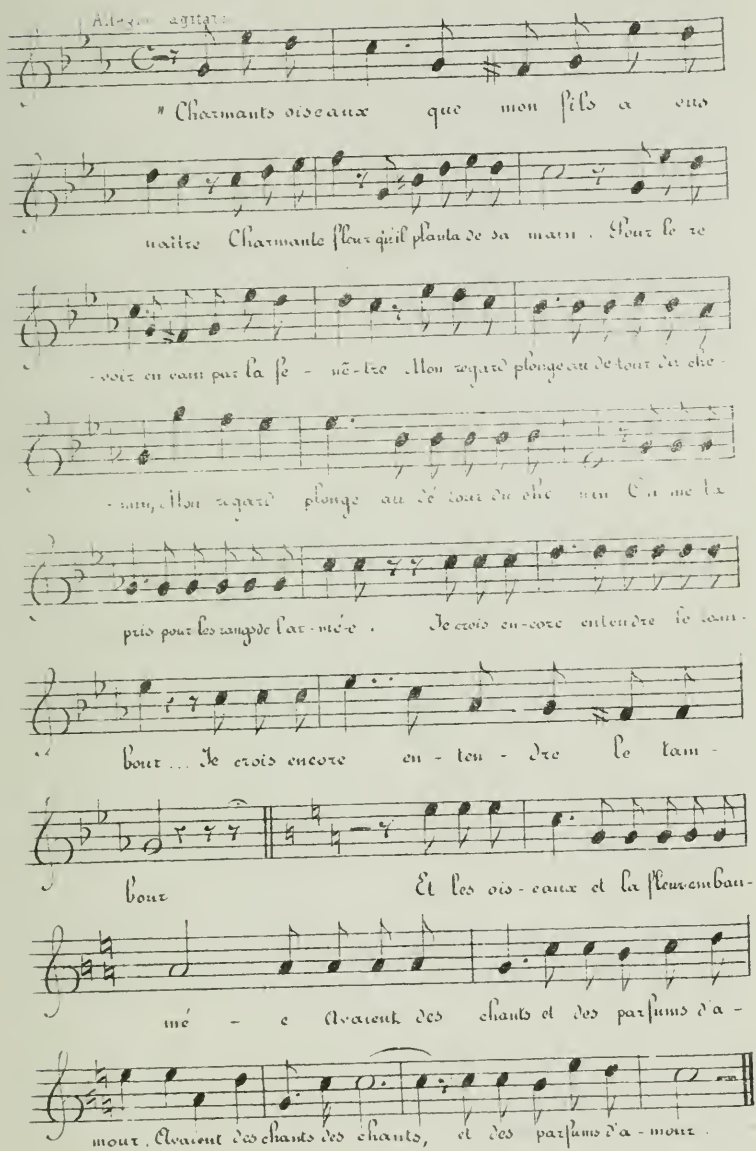 Allegro agitato
" Charmants oiseaux que mon fils a vus
naître Charmante fleur qu'il planta de sa main. Pour le re
-voir en vain par la fe - nê-tre Mon regard plonge au détour du che-
-min, Mon regard plonge au dé tour du che min On me l'a
pris pour les rangs de l'ar-mé-e. Je crois en-core entendre le tam-
bour... Je crois encore en - ten - dre le tam -
bour Et les ois-eaux et la fleur embau-
mé - e Avaient des chants et des parfums d'a -
mour. Avaient des chants des chants, et des parfums d'a - mour.